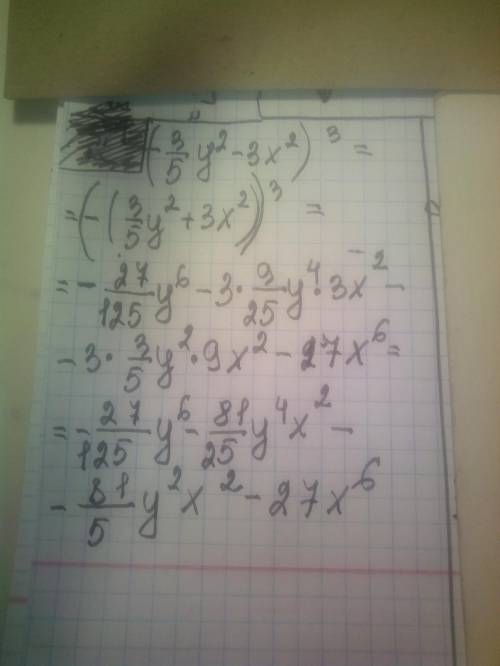 (-3/5 y² - 3x²)³ =
= (-(3/5 y² + 3x²))³ =
= - 27/125 y⁶ - 3 · 9/25 y⁴ · 3x² -
- 3 · 3/5 y² · 9x² - 27x⁶ =
= - 27/125 y⁶ - 81/25 y⁴ x² -
- 81/5 y² x² - 27x⁶